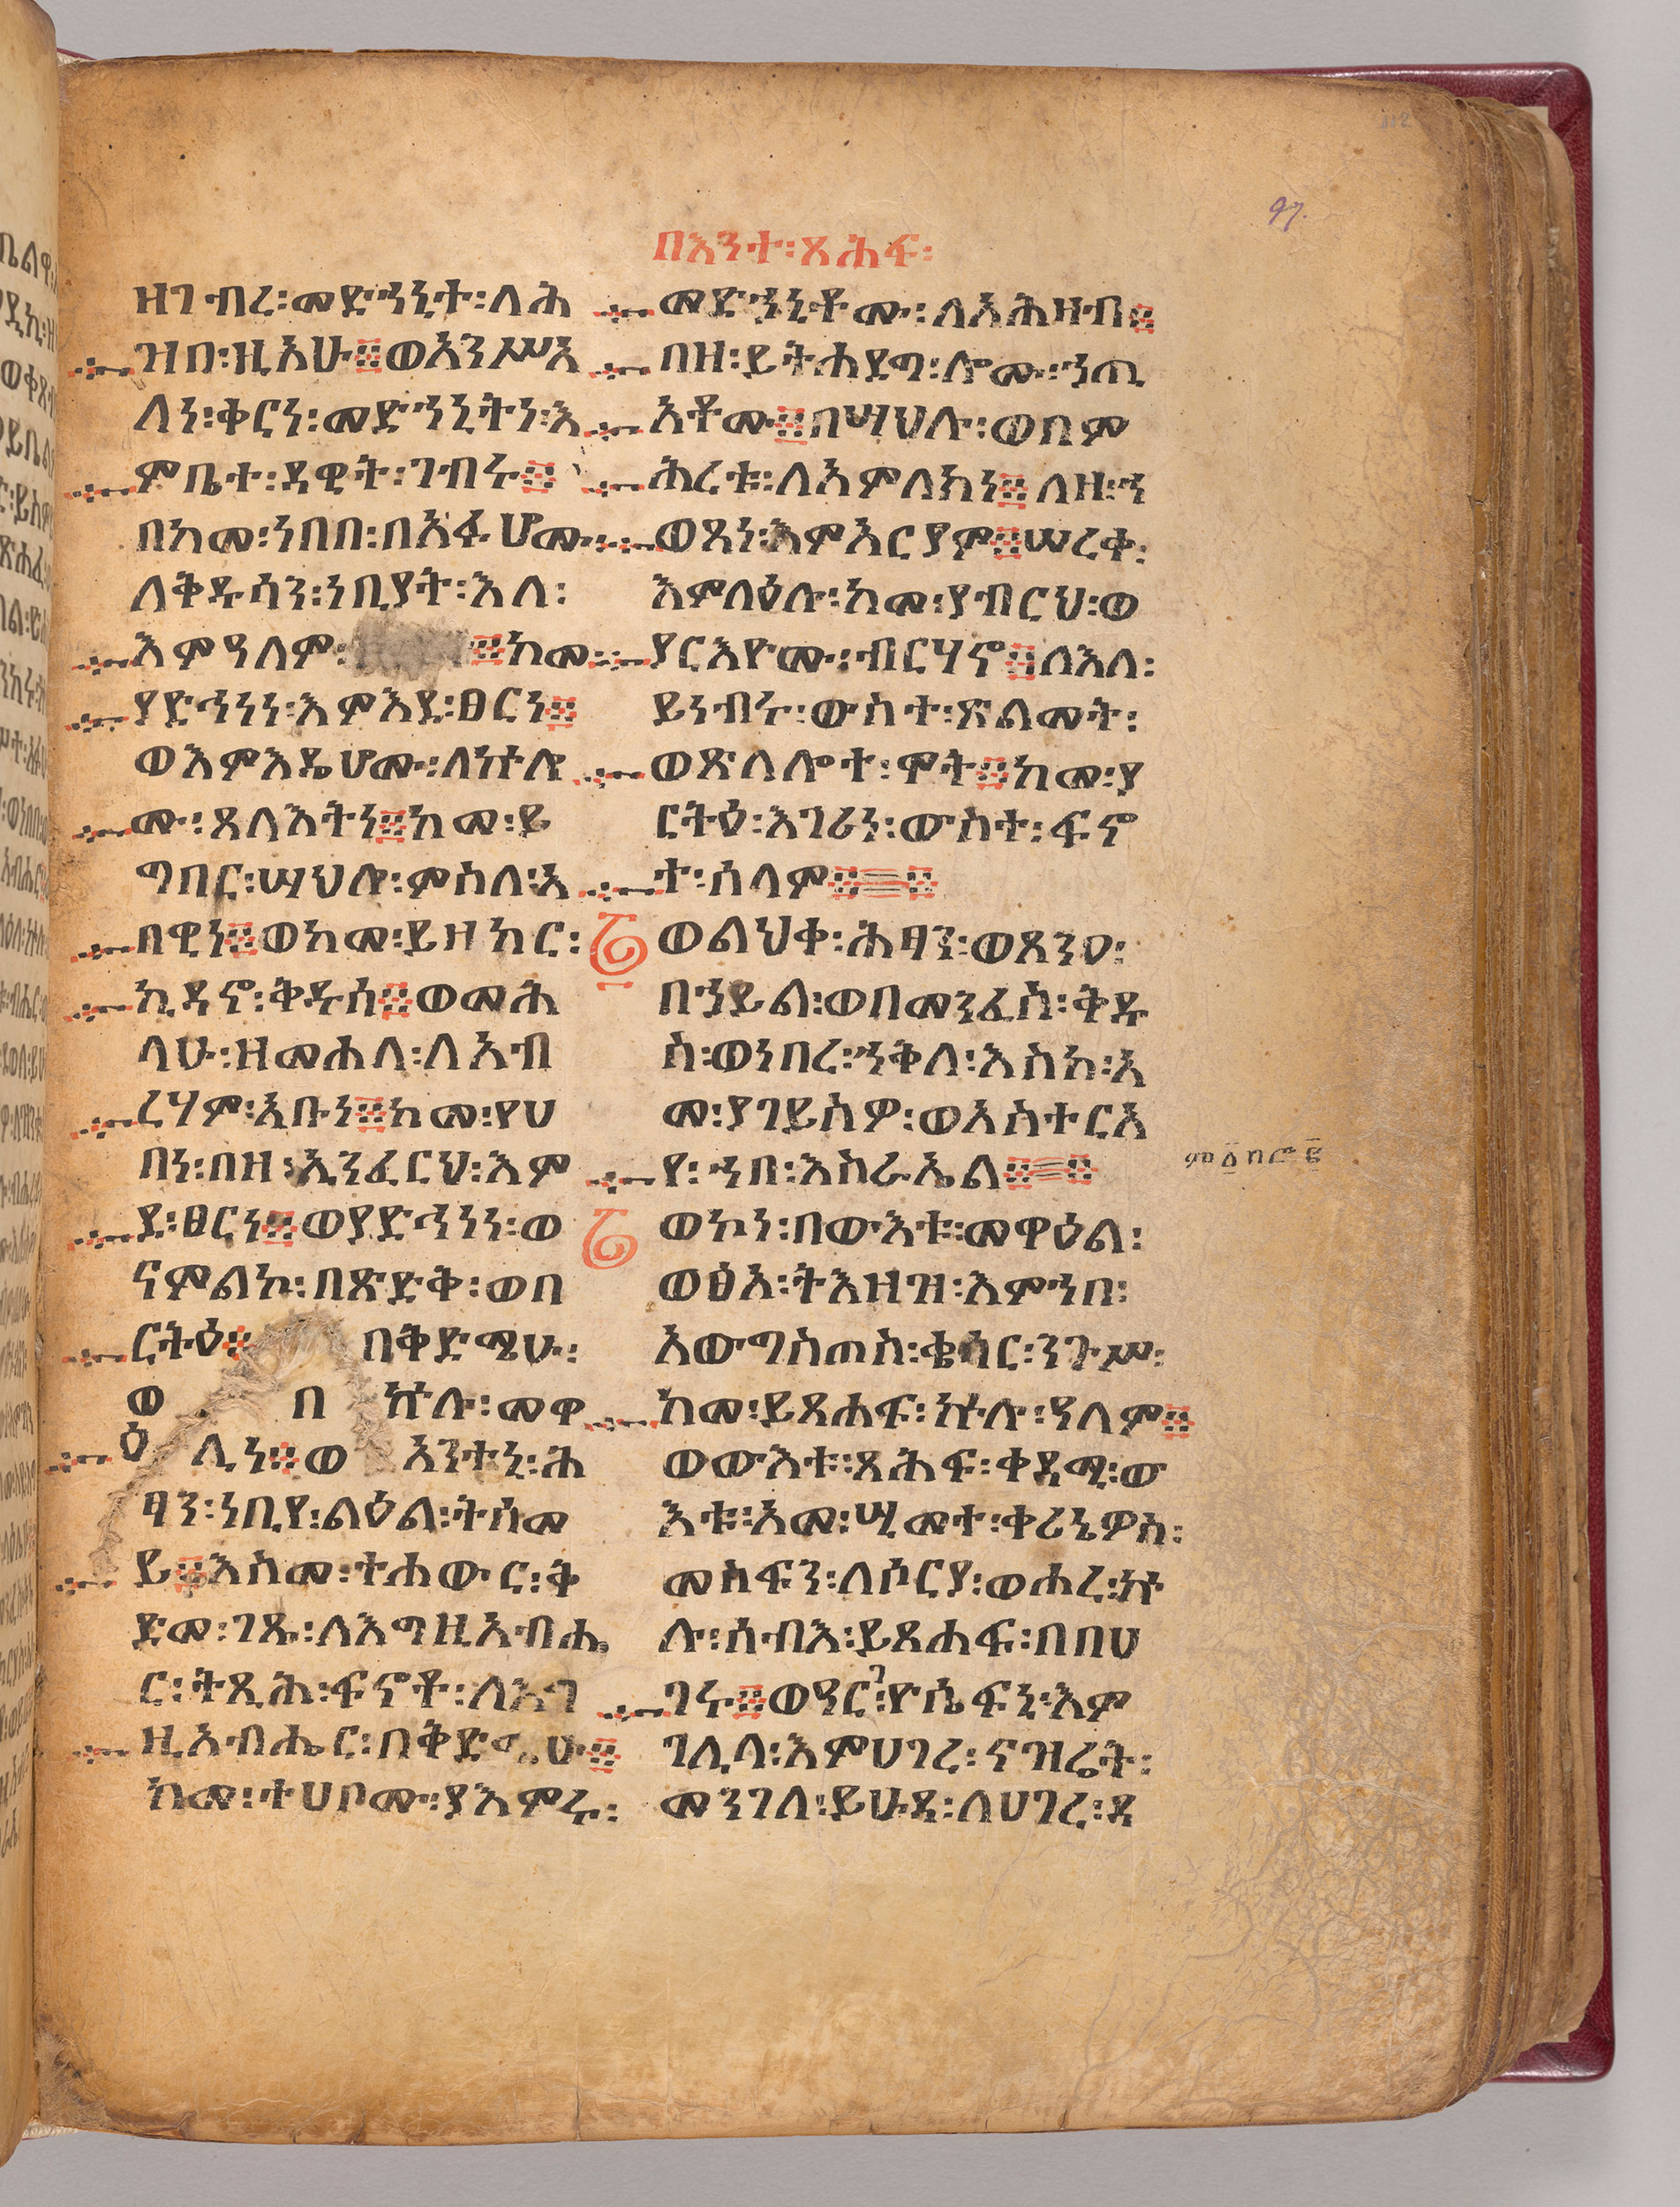 97.
በእንተ፡ጸሕፍ፡
ዘገብረ፡መድኀኒተ፡ለሕ
ዝበ፡ዚአሁ፨ወአንሥአ
ለነ፡ቅርነ፡መድኀኒትነ፡እ
ምቤተ፡ዳዊት፡ገብሩ፨
በከመ፡ነበበ፡በአፉሆሙ፡
ለቅዱሳን፡ነቢያት፡እለ፡
እምዓለም፡፨ከመ፡
ያድኅነነ፡እምእደ፡ፀርነ፨
ወእምእዴሆሙ፡ለኵሎ
ሙ፡ጸላእትነ፨ከመ፡ይ
ግበር፡ሣህሎ፡ምስለ፡አ
በዊነ፨ወከመ፡ይዘከር፡
ኪዳኖ፡ቅዱሰ፨ወመሕ
ላሁ፡ዘመሐለ፡ለአብ
ረሃም፡አቡነ፨ከመ፡የሀ
በነ፡በዘ፡ኢንፈርህ፡እም
ደ፡ፀርነ፨ወያድኅነነ፡ወ
ናምልኮ፡በጽድቅ፡ወበ
ርትዕ፨በቅድሜሁ፡
ወበኵሉ፡መዋ
ዕሊነ፨ወአንተኒ፡ሕ
ፃን፡ነቢየ፡ልዑል፡ትሰመ
ይ፨እስመ፡ተሐውር፡ቅ
ድመ፡ገጹ፡ለእግዚአብሔ
ር፡ትጺሕ፡ፍኖቶ፡ለእግ
ዚአብሔር፡በቅድሜሁ፨
ከመ፡ተሀቦሙ፡ያእምሩ፡
መድኀኒቶሙ፡ለአሕዛብ፨
በዘ፡ይትሐደግ፡ሎሙ፡ኀጢ
አቶሙ፨በሣህሉ፡ወበም
ሕረቱ፡ለአምላክነ፨ለዘ፡ኀ
ወጸነ፡እምአርያም፨ሠረቀ፡
እምላዕሉ፡ከመ፡ያብርህ፡ወ
ያርእዮሙ፡ብርሃኖ፨ለእለ፡
ይነብሩ፡ውስተ፡ጽልመት፡
ወጽላሎተ፡ሞት፨ከመ፡ያ
ርትዕ፡እገሪነ፡ውስተ፡ፍኖ
ተ፡ሰላም፨፨
ወልህቀ፡ሕፃን፡ወጸንዐ፡
በኀይል፡ወበመንፈስ፡ቅዱ
ስ፡ወነበረ፡ኀቅለ፡እስከ፡አ
መ፡ያገይስዎ፡ወአስተርአ
የ፡ኀበ፡እስራኤል፨፨
ወኮነ፡በውእቱ፡መዋዕል፡
ወፅአ፡ትእዛዝ፡እምኀበ፡
አውግስጠስ፡ቄሳር፡ንጉሥ፡
ከመ፡ይጸሐፍ፡ኵሉ፡ዓለም፨
ወውእቱ፡ጸሕፍ፡ቀዳሚ፡ው
እቱ፡አመ፡ሢመተ፡ቀሪኔዎስ፡
መስፍን፡ለሶርያ፡ወሐረ፡ኵ
ሉ፡ሰብእ፡ይጸሐፍ፡በበሀ
ገሩ፨ወዓርገ፡ዮሴፍኒ፡እም
ገሊላ፡እምሀገረ፡ናዝሬት፡
መንገለ፡ይሁዳ፡ለሀገረ፡ዳ